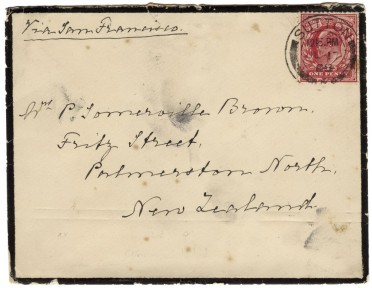 Via San Francisco.
SUTTON
ONE PENNY
P. Somerville Brown.
Fritz Street,
Palmerston North.
New Zealand.